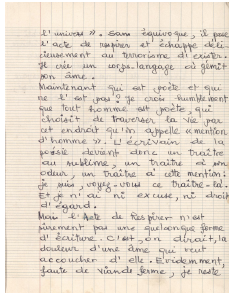 l'univers ». Sans équivoque, il pose
l'acte de respirer et échappe déli
cieusement au terrorisme d'exister.
Il crie un corps-langage où gémit
son âme.
Maintenant qui est poète et qui
ne l'est pas ? Je crois humblement
que tout homme est poète qui
choisit de traverser la vie par
cet endroit qu'on appelle « mention
d'homme ». L'écrivain de la
poésie devient donc un traître
au sublime, un traître à son
odeur, un traître à cette mention.
Je suis, voyez-vous ce traître-là.
Et je n'ai ni excuse, ni droit
d'égard.
Mais l'Acte de Respirer n'est
purement pas une quelconque forme
d'écriture. C'est, on dirait, la
douleur d'une âme qui veut
accoucher d'elle. Evidemment,
faute de viande ferme, je reste